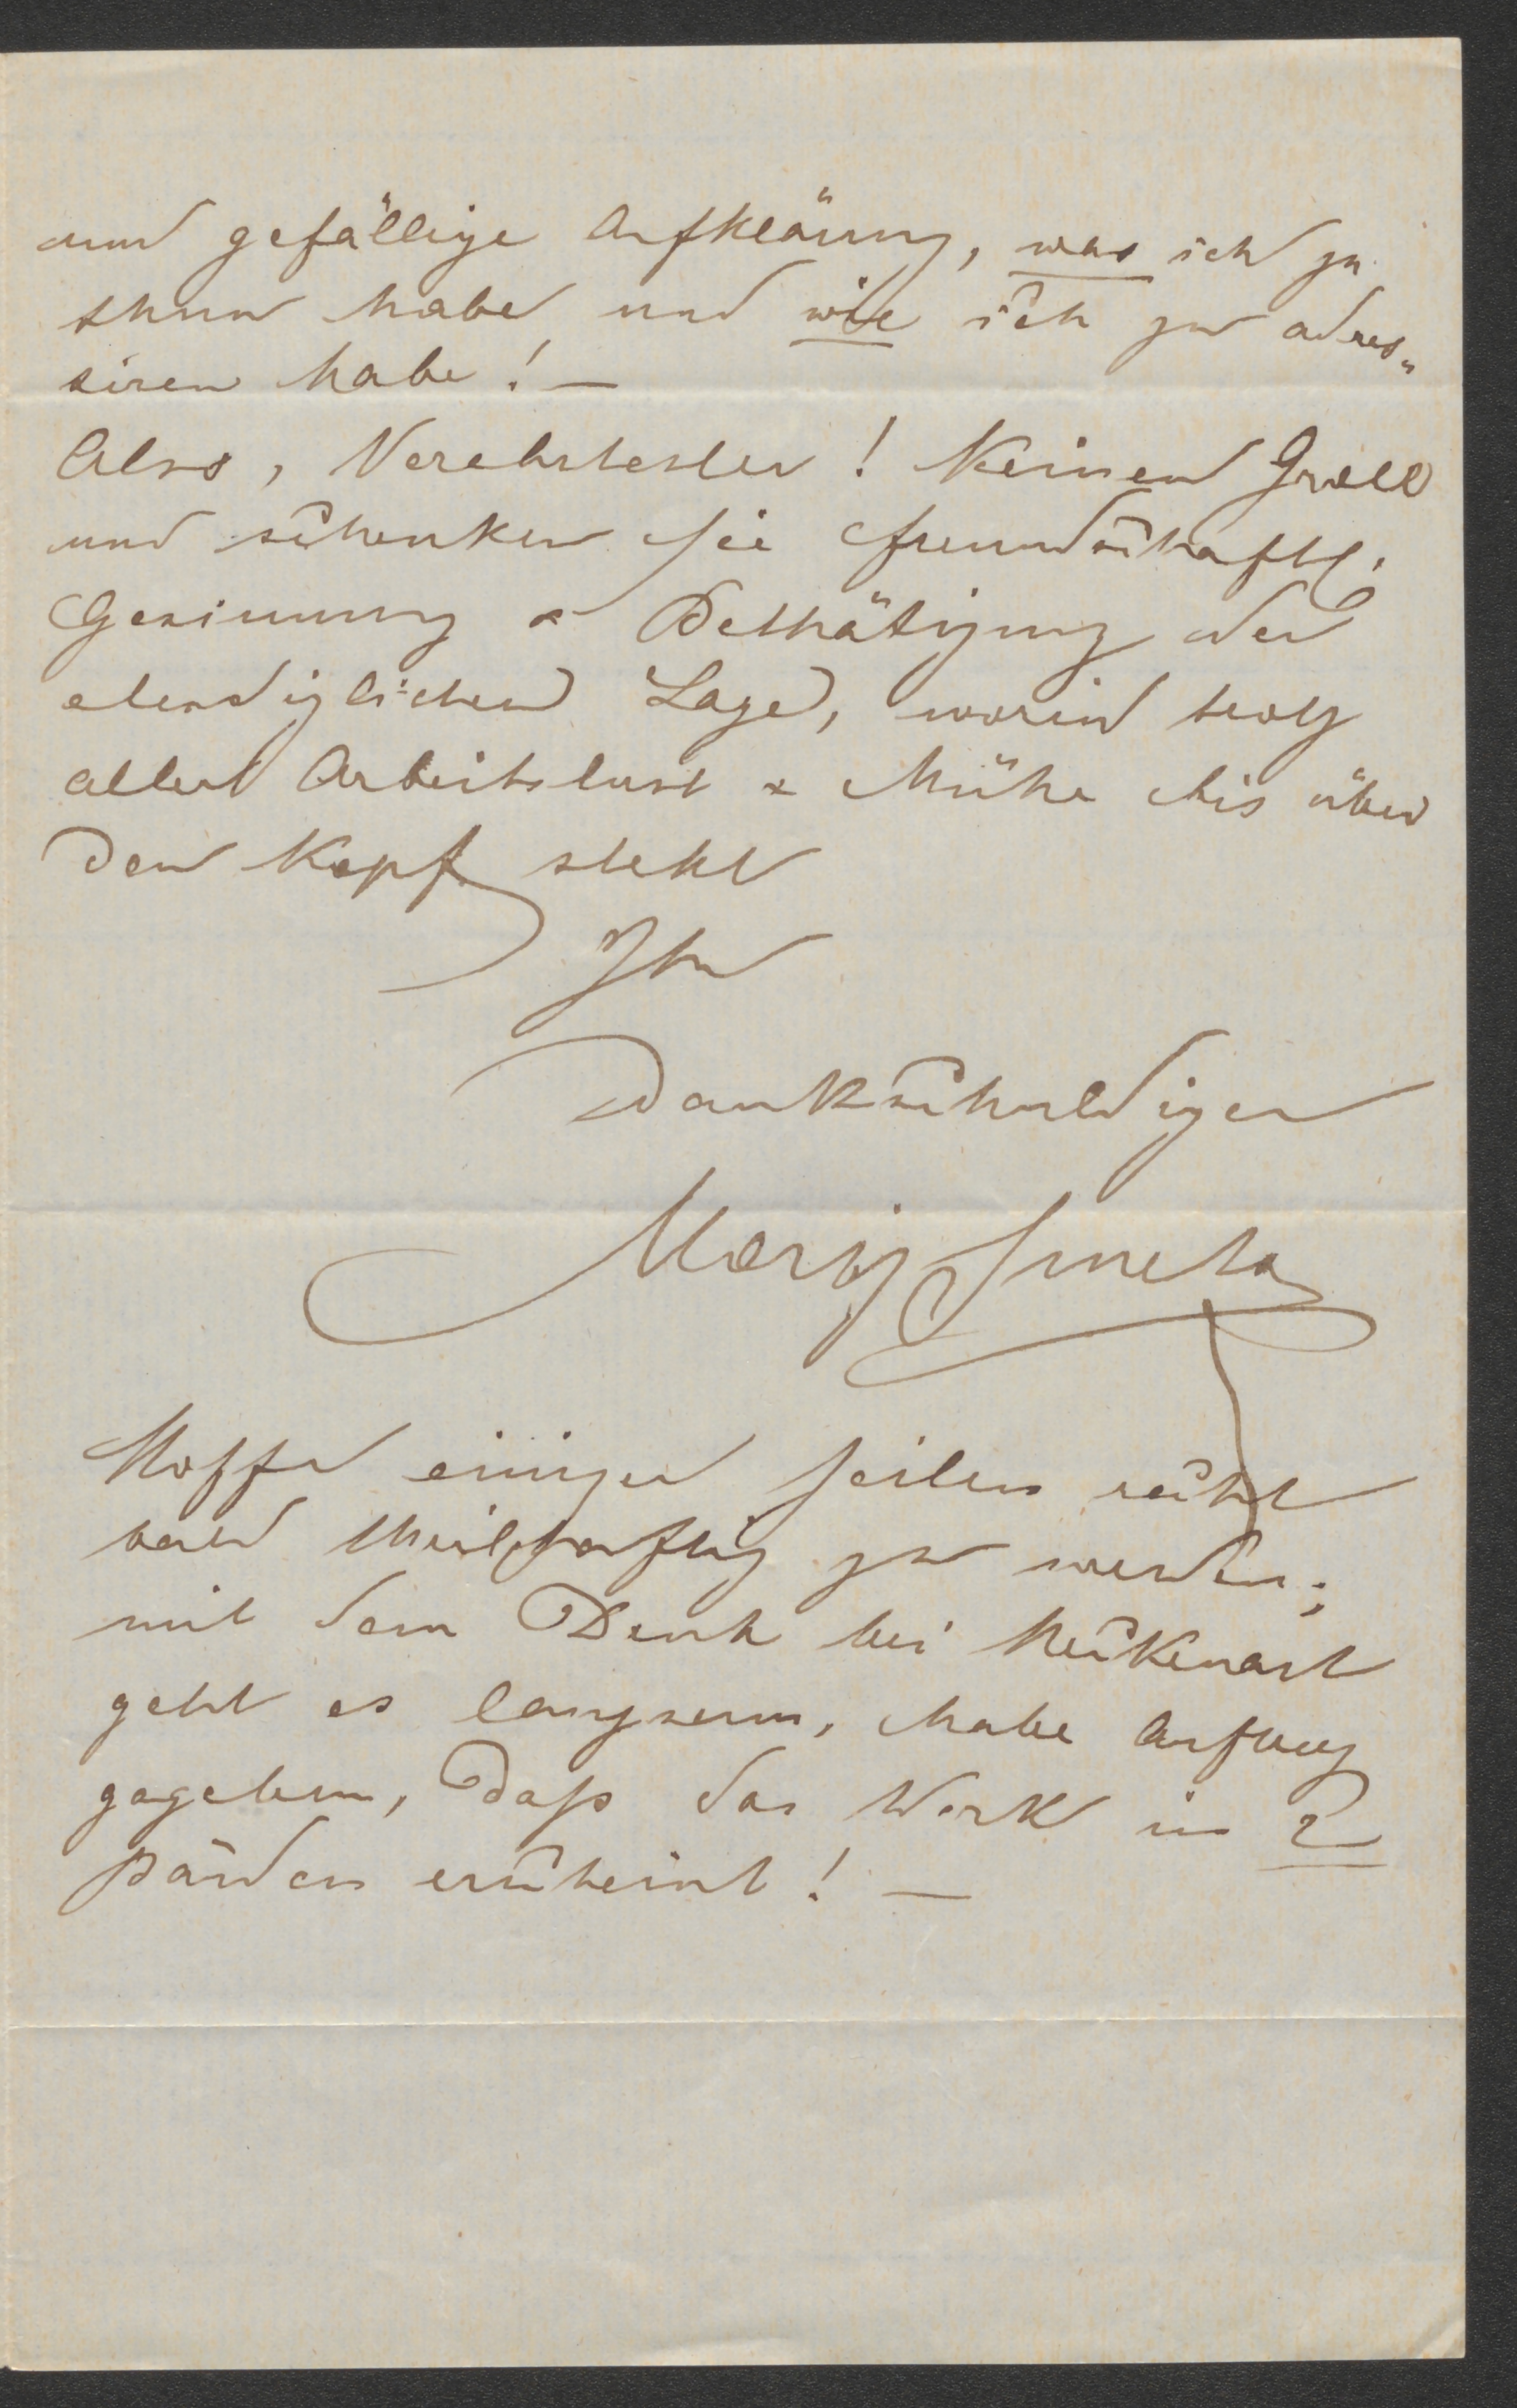 und gefällige Aufklärung, was ich zu
thun habe und wie ich zu adres-
siren habe! —
Also, Verehrtester! Keinen Groll
und schenken Sie freundschaftl.
Gesinnung & Bethätigung der
elendiglichen Lage, worin trotz
aller Arbeitslust & Mühe bis über
den Kopf steckt
Ihr
Dankschuldiger
Moriz Smets
Hoffe einiger Zeilen recht
bald theilhaftig zu werden;
mit dem Druck bei Heckenast
geht es langsam, habe Auftrag
gegeben, daß das Werk in 2
Bänden erscheint! —